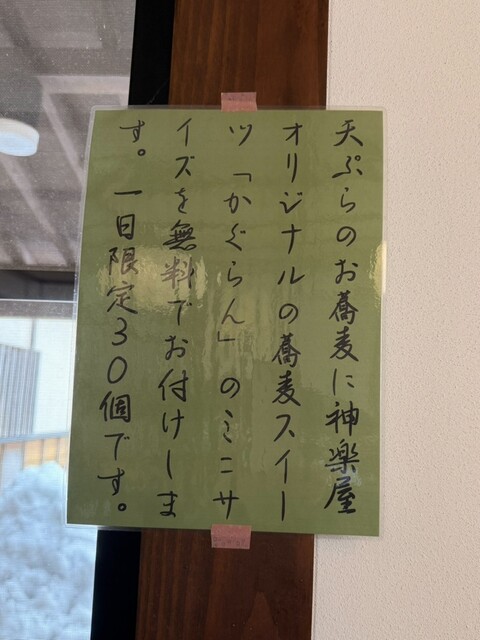 天ぷらのお蕎麦に神楽屋
オリジナルの蕎麦スイー
ツ「かぐらん」のミニサ
イズを無料でお付けしま
す。一日限定30個です。